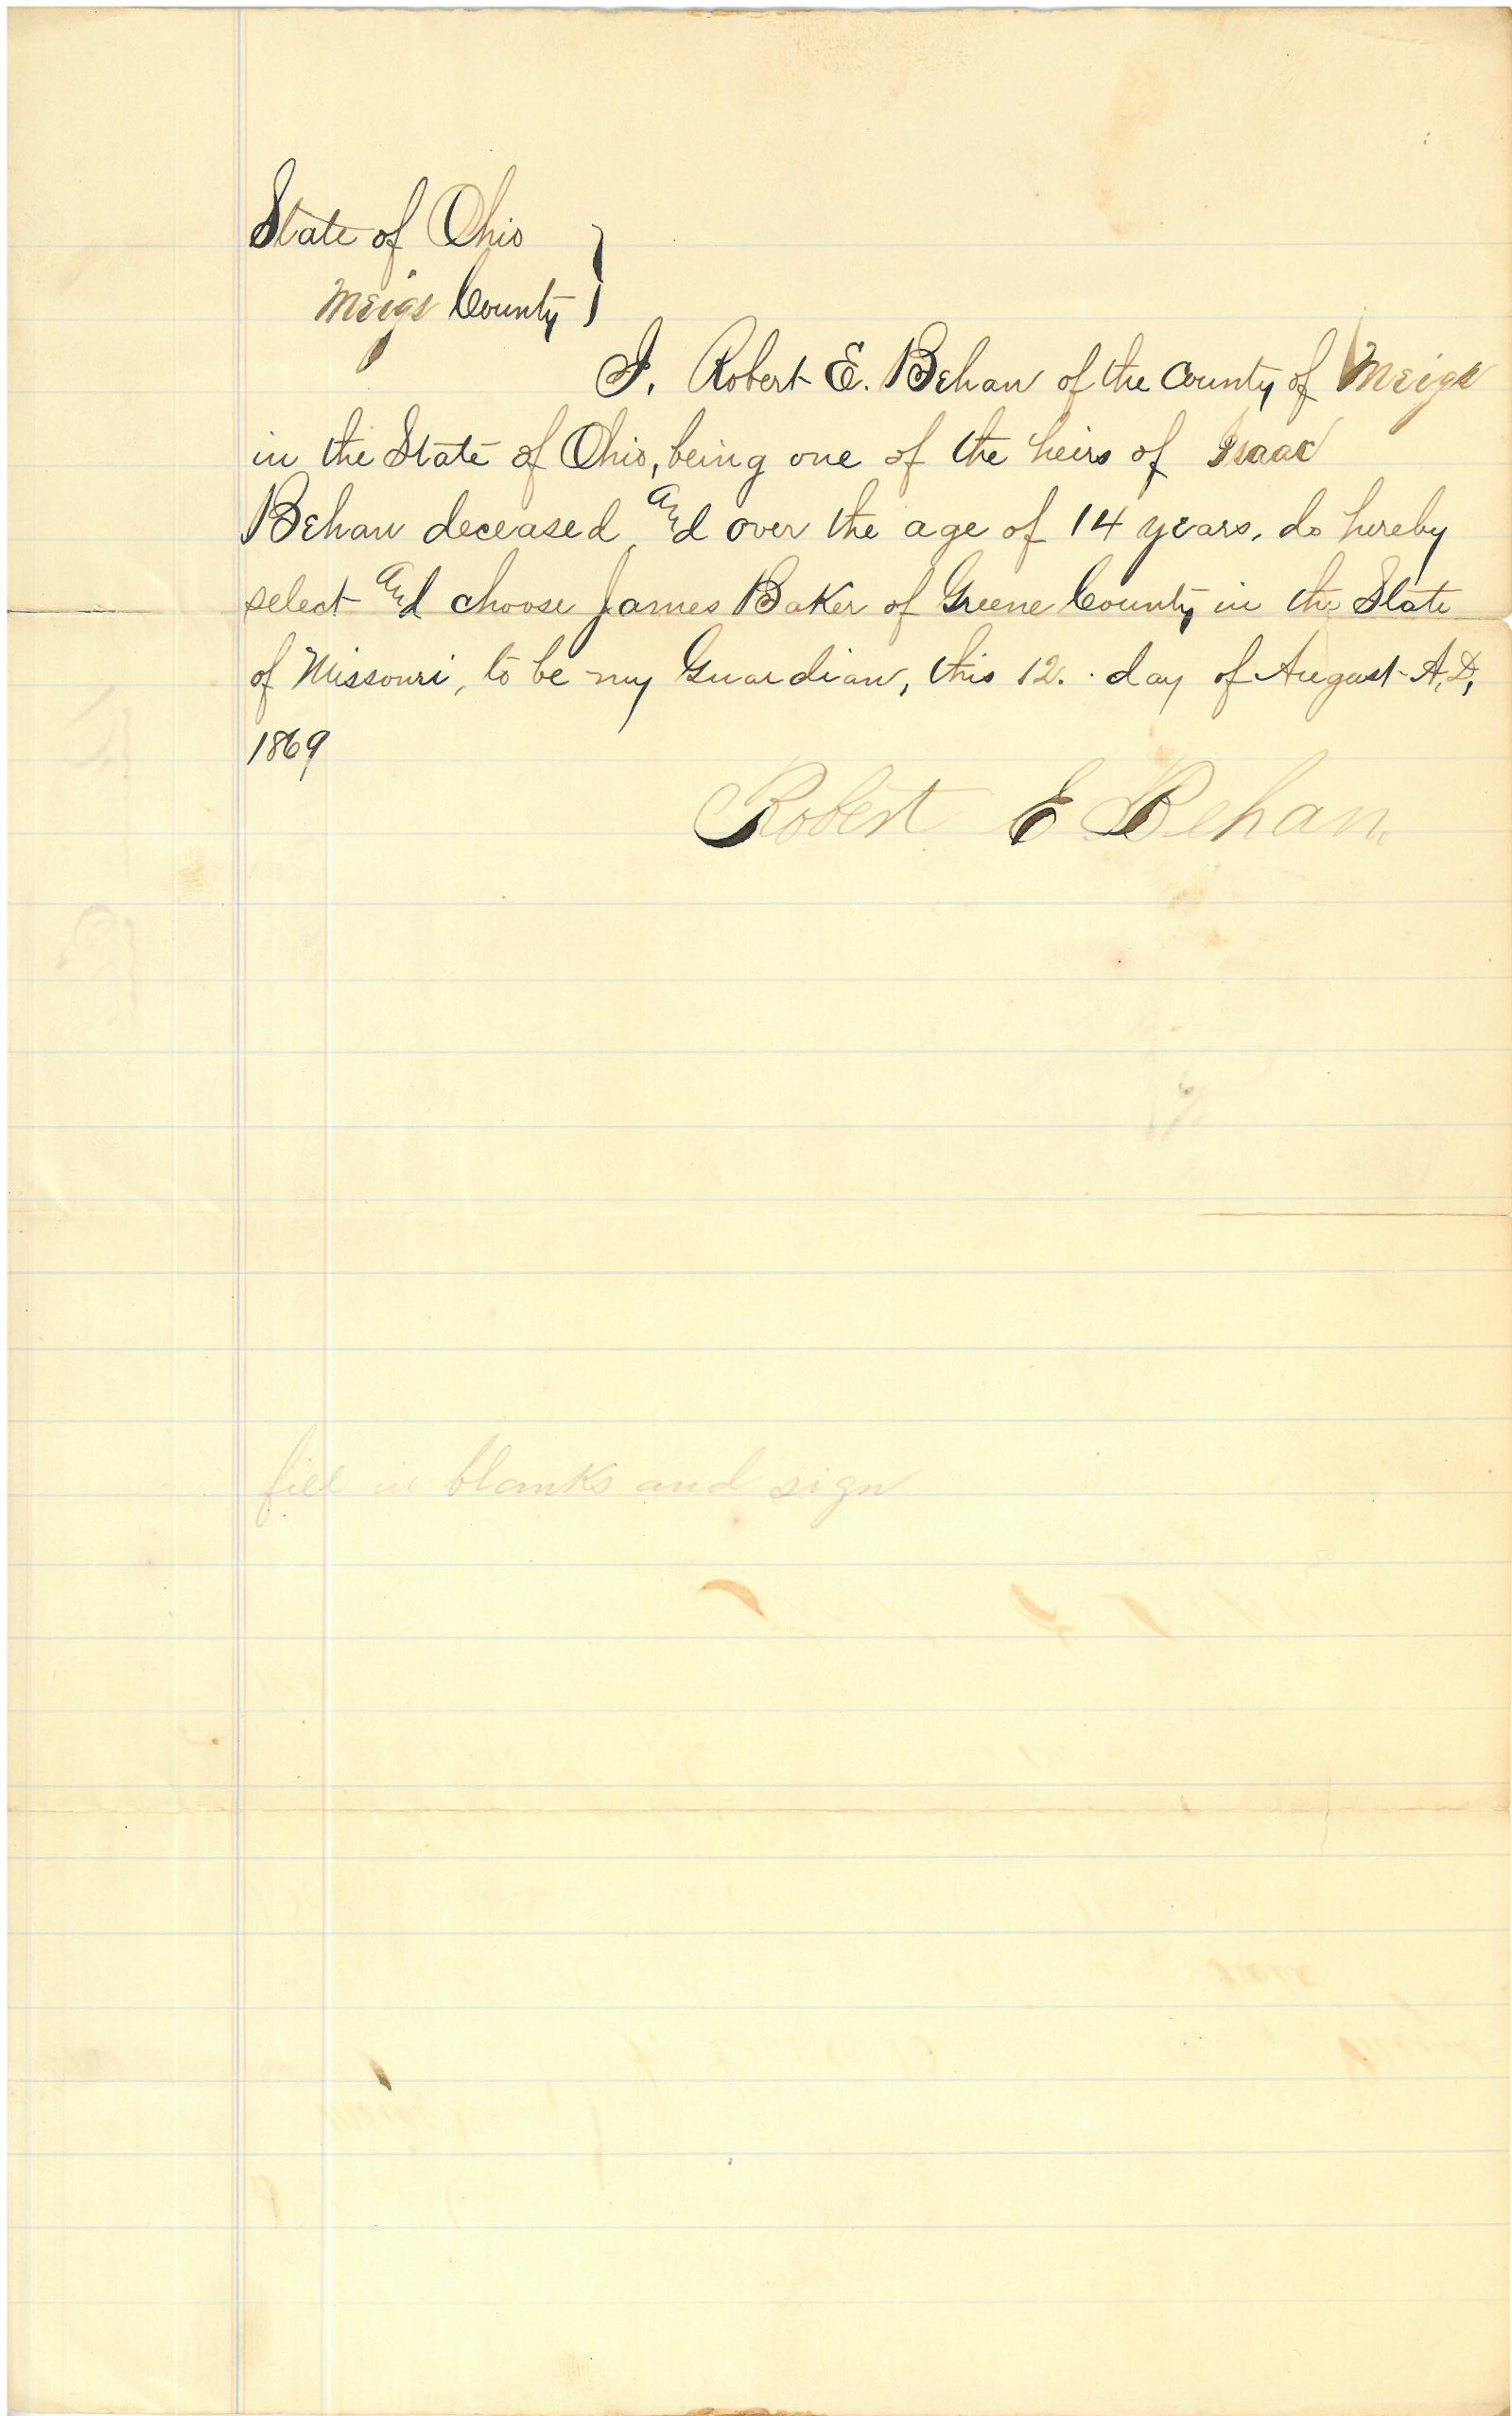 State of Ohio }
Meigs County }
I, Robert E. Behan of the County of Meigs
in the State of Ohio, being one of the heirs of Isaac
Behan deceased, and over the age of 14 years, do hereby
select and choose James Baker of Greene County, in the State
of Missouri, to be my Guardian, this 12. day of August A.D,
1869
Robert E Behan.
fill in blanks and sign